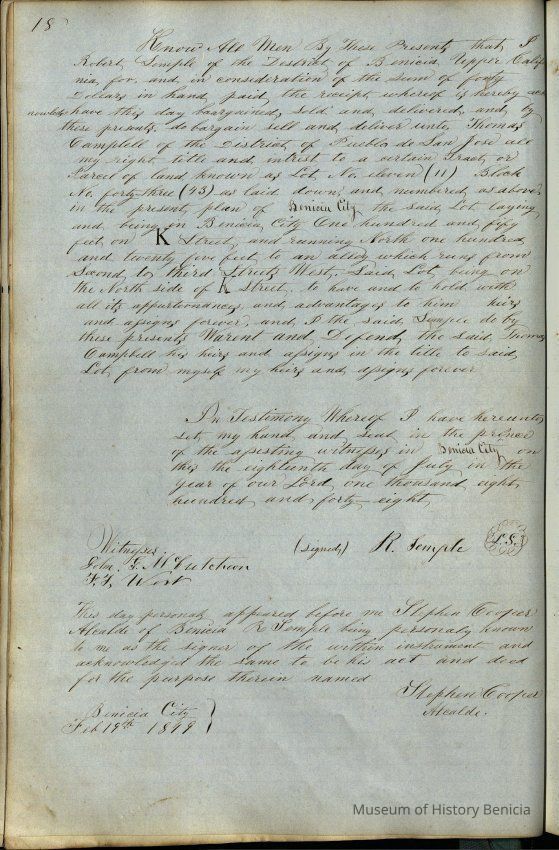 18
Know All Men By These Presents that I
Robert Semple of the District of Benicia, Upper Califor
nia, for, and, in consideration of the sum of forty
Dollars in hand, paid, the receipt whereof is hereby ack
nowledge have this day baargained, sold and delivered, and, by
these presents, do bargain sell and deliver unto, Thomas
Campbell of the District, of Pueblo de San Jose all
my right title and intrest to a certain Tract, or
Parcel of land known as Lot, No. eleven (11) Block
No. forty-three (43) as laid down, and, numbered, as above,
in the present, plan of Benicia City, the said, Lot laying
and being in Benicia, City One hundred and, fifty
feet, on K Street, and running North one hundred
and twenty five feet to an alley which runs from
Second, to third Streets West, said, Lot, being on
the North side of K Street, to have and to hold with
all its appurtionances, and, advantages to him heirs
and assigns forever, and, I the said, Semple do by
these presents Warent and Defend, the said, Thomas
Campbell his heirs and assigns in the title to said,
Lot, from myself my heirs and, assigns forever
In Testimony Whereof I have hereunto
set, my hand, and seal in the presnce
of the assesting witnesses in Benicia City on
this the eighteenth day of July in the
year of our Lord, one thousand, eight,
hundred and forty-eight,
Witnesses.
(signed,) R. Semple L.S.
John, F. McCutcheon
F. F. West
This day personaly appeared before me Stephen Cooper
Alcalde of Benicia R Semple being personaly known
to me as the signer of the within instrument and
acknowledged the same to be his act and deed
for the purpose therein named
Stephen Cooper
Alcalde.
Benicia City
Feb 19th 1849
Museum of History Benicia